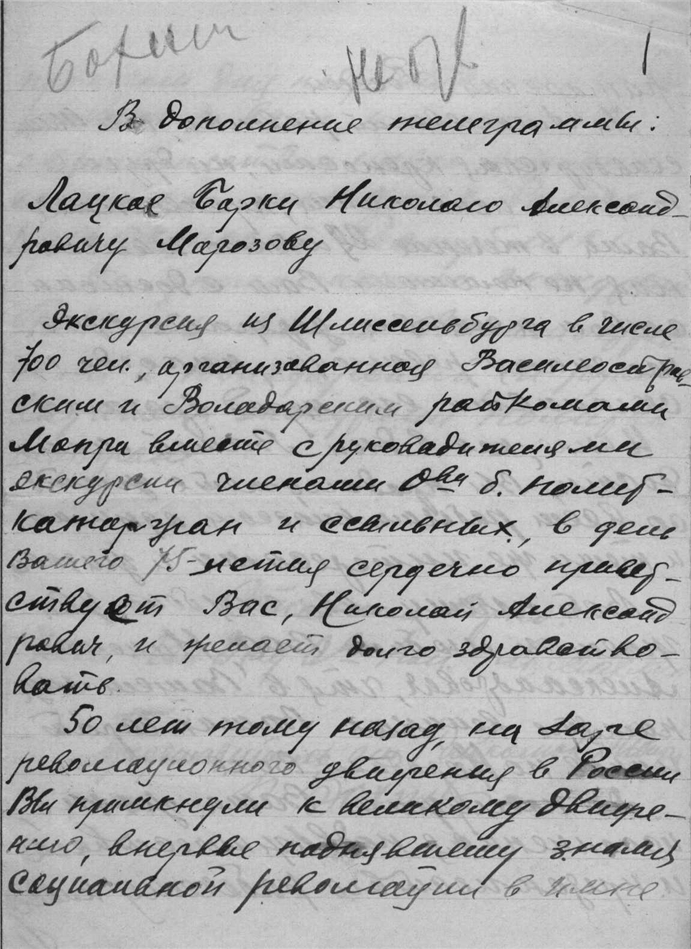 1
В дополнение телеграммы:
Лацкое Барки Николаю Александ-
ровичу Марозову
Экскурсия из Шлиссельбурга в числе
700 чел., организованная Василеостров-
ским и Володарским райкомами
Мопра вместе с руководителями
экскурсии членами О-ва б. полит-
каторжан и ссыльных, в день
Вашего 75-летия сердечно привет-
ствует Вас, Николай Александ
рович, и желает долго здравство-
вать.
50 лет тому назад, на заре
революционного движения в России
Вы примкнули к великому движе-
нию, впервые поднявшему знамя
социальной революции в